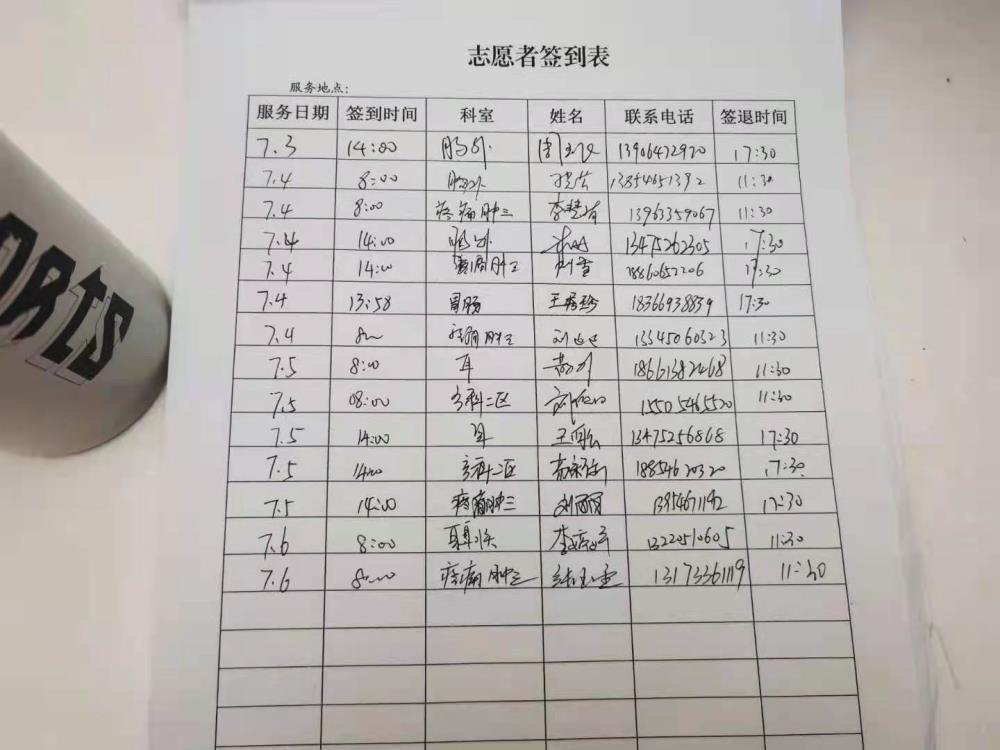 志愿者签到表
服务地点:
服务日期 签到时间 科室 姓名 联系电话 签退时间
7.3 14:00 肠外 13906472920 17:30
7.4 8:00 13854651392 11:30
7.4 8:00 疼痛肿三 李慧 13963359067 11:30
7.4 14:00 肠外 13475262305 17:30
7.4 14:00 疼痛肿三 刘雪 18860652206 17:30
7.4 13:58 胃肠 王 18366938839 17:30
7.4 疼痛肿三 刘 13345060323 11:30
7.5 8:00 耳 18661382468 11:30
7.5 08:00 二区 刘 15505465520 11:30
7.5 14:00 耳 王 13475256868 17:30
7.5 14:00 二区 1885462320 17:30
7.5 14:00 疼痛肿三 刘丽丽 13954671192 17:30
7.6 8:00 耳鼻头 李 13220510605 11:30
7.6 疼痛肿三 张玉 13173361119 11:30
ORTS